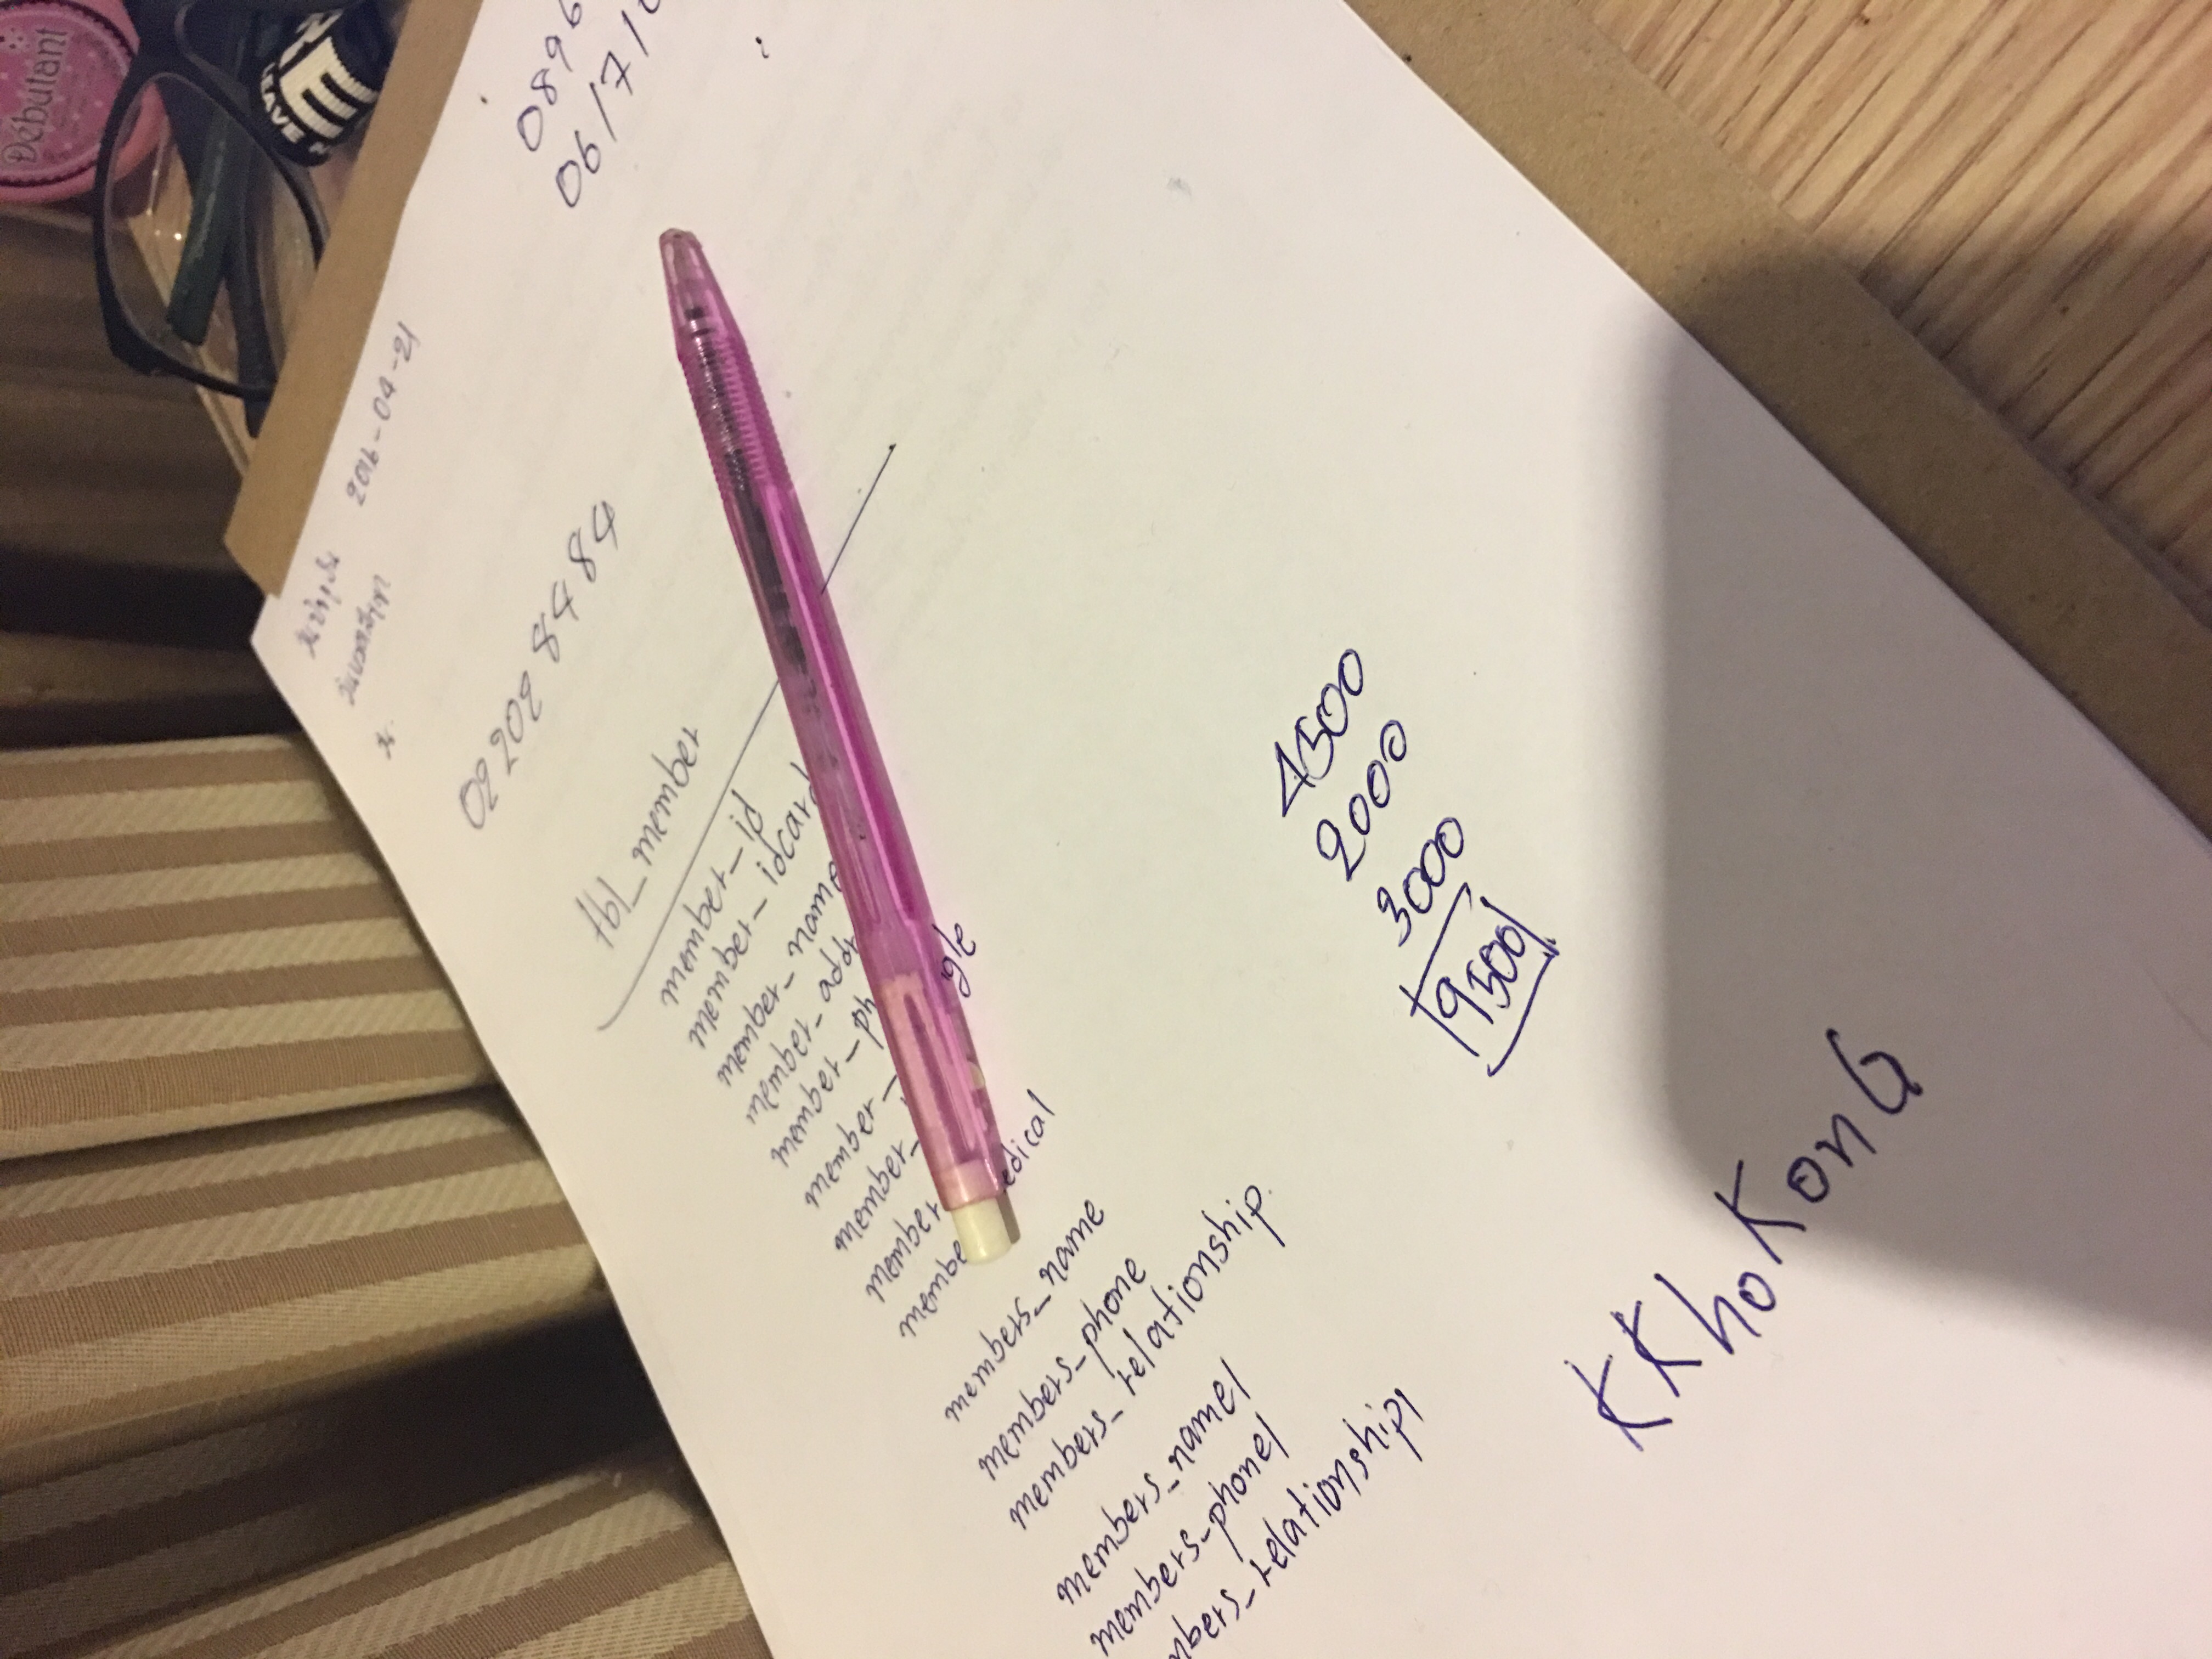 Débutant
LEAVE
วันปัจจุบัน 2016-04-21
วัน
022028484
0896
06/7/
tbl_member
member_id
member_idcard
member_name
member_addr
member_ph
member_
member_
member
membe
gle
edical
members_name
members_phone
members_relationship.
members_name1
members_phone1
mbers_relationship1
4500
2000
3000
9500
KKhoKonG